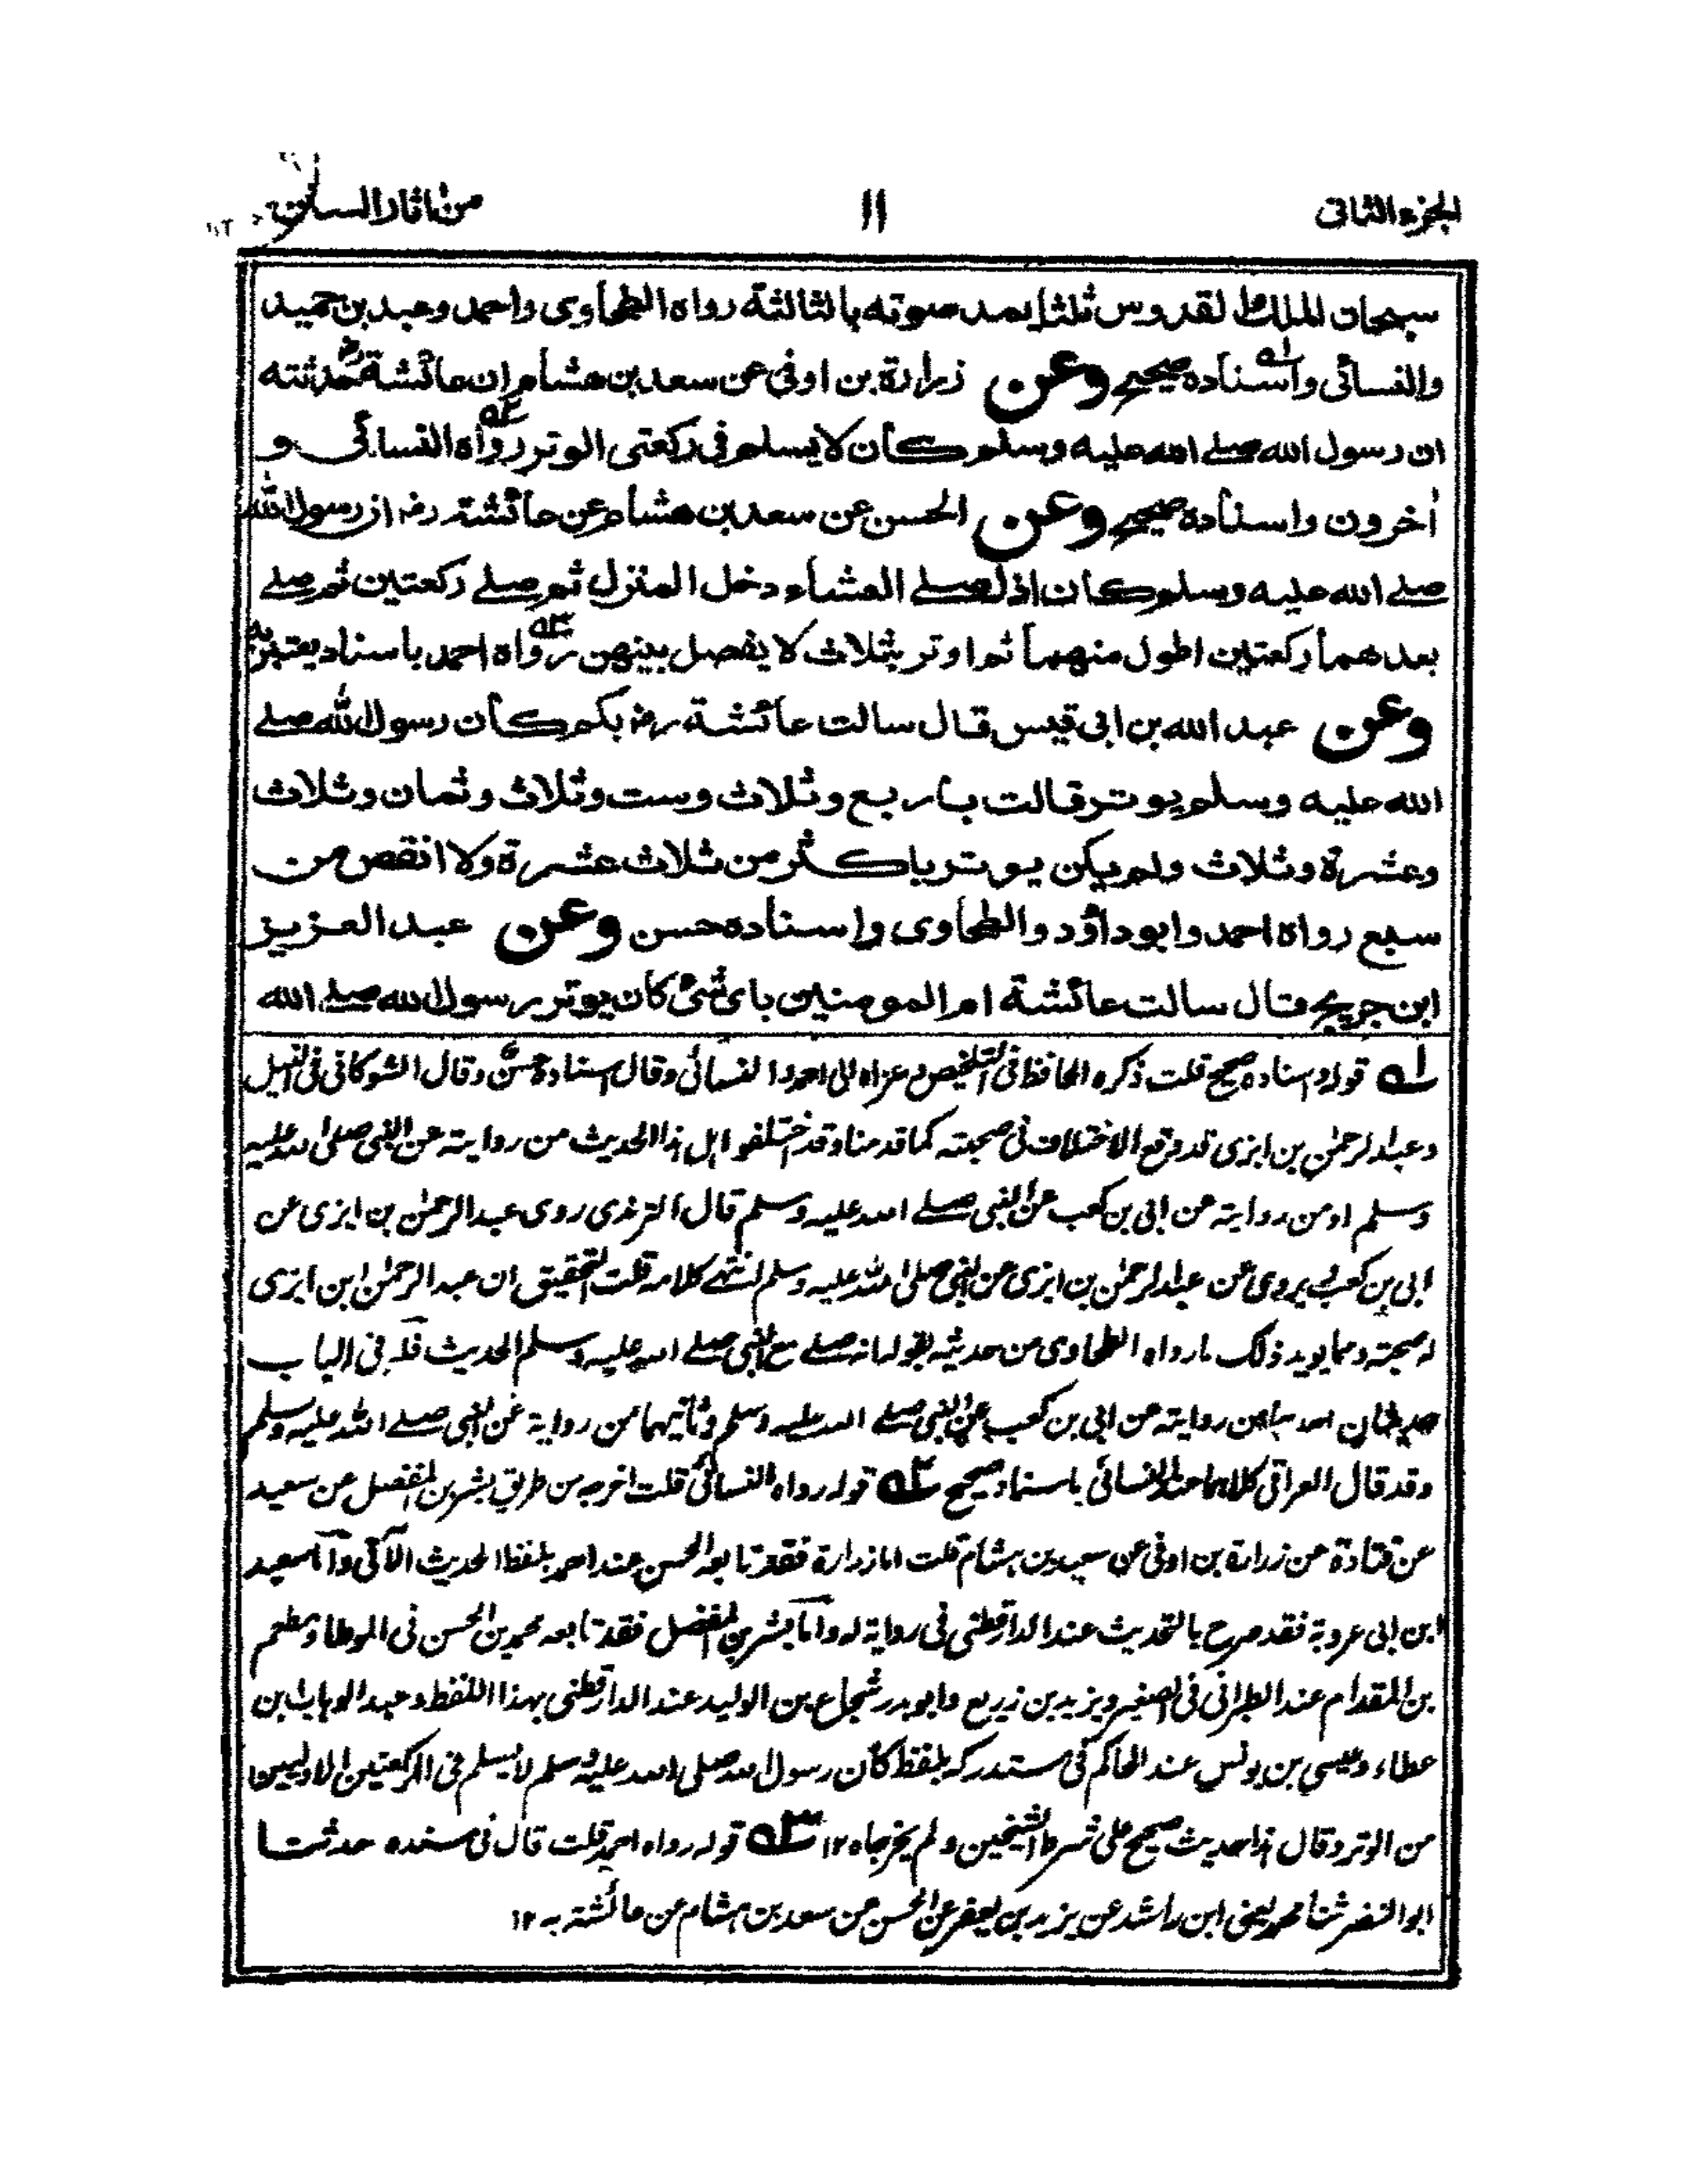 الجزء الثانى
١١
من اثار السنن
سبحان الملك القدوس ثلثا يمد صوته بالثالثة رواه الطحاوى واحمد وعبد بن حميد
والنسائى واسناده صحيح وعن زرارة بن اوفى عن سعد بن هشام ان عائشة حدثته
ان رسول الله صلے الله عليه وسلم كان لا يسلم فى ركعتى الوتر رواه النسائى و
اٰخرون واسناده صحيح وعن الحسن عن سعد بن هشام عن عائشة رض ان رسول الله
صلے الله عليه وسلم كان اذا صلے العشاء دخل المنزل ثم صلے ركعتين ثم صلے
بعدهما ركعتين اطول منهما ثم اوتر بثلاث لا يفصل بينهن رواه احمد باسناد يعتبر به
وعن عبد الله بن ابى قيس قال سالت عائشة رض بكم كان رسول الله صلے
الله عليه وسلم يوتر قالت باربع وثلاث وست وثلاث وثمان وثلاث
وعشرة وثلاث ولم يكن يوتر باكثر من ثلاث عشرة ولا انقص من
سبع رواه احمد وابو داؤد والطحاوى واسناده حسن وعن عبد العزيز
ابن جريج قال سالت عائشة ام المومنين باى شئ كان يوتر رسول الله صلے الله
١ه قوله واسناده صحيح قلت ذكره الحافظ فى التلخيص وعزاه الى احمد والنسائى وقال اسناده حسن وقال الشوكانى فى النيل
وعبد الرحمٰن بن ابزى قد وقع الاختلاف فى صحبته كما قدمنا وقد اختلفوا هل هذا الحديث من روايته عن النبى صلى الله عليه
وسلم او من روايته عن ابى بن كعب عن النبى صلے الله عليه وسلم قال الترمذى روى عبد الرحمٰن بن ابزى عن
ابى بن كعب ويروى عن عبد الرحمٰن بن ابزى عن النبى صلى الله عليه وسلم انتهے كلامه قلت التحقيق ان عبد الرحمٰن ابن ابزى
له صحبة ومما يويد ذلك ما رواه الطحاوى من حديثه بقوله انه صلے مع النبى صلے الله عليه وسلم الحديث فله فى الباب
حديثان احدهما من روايته عن ابى بن كعب عن النبى صلے الله عليه وسلم وثانيهما من رواية عن النبى صلے الله عليه وسلم
وقد قال العراقى كلاهما عند النسائى باسناد صحيح ٢ه قوله رواه النسائى قلت اخرجه من طريق بشر بن المفضل عن سعيد
عن قتادة عن زرارة بن اوفى عن سعيد بن هشام قلت اما زرارة فقد تابعه الحسن عند احمد بلفظ الحديث الآتى واما سعيد
ابن ابى عروبة فقد صرح بالتحديث عند الدارقطنى فى رواية له واما بشر بن المفضل فقد تابعه محمد بن الحسن فى الموطا ومطعم
بن المقدام عند الطبرانى فى الصغير ويزيد بن زريع وابو بدر شجاع بن الوليد عند الدارقطنى بهذا اللفظ وعبد الوهاب بن
عطاء وعيسى بن يونس عند الحاكم فى مستدركه بلفظ كان رسول الله صلى الله عليه وسلم لا يسلم فى الركعتين الاوليين
من الوتر وقال هذا حديث صحيح على شرط الشيخين ولم يخرجاه ١٢ ٣ه قوله رواه احمد قلت قال فى مسنده حدثنا
ابو النضر ثنا محمد يعنى ابن راشد عن يزيد بن يعفر عن الحسن عن سعد بن هشام عن عائشة به ١٢